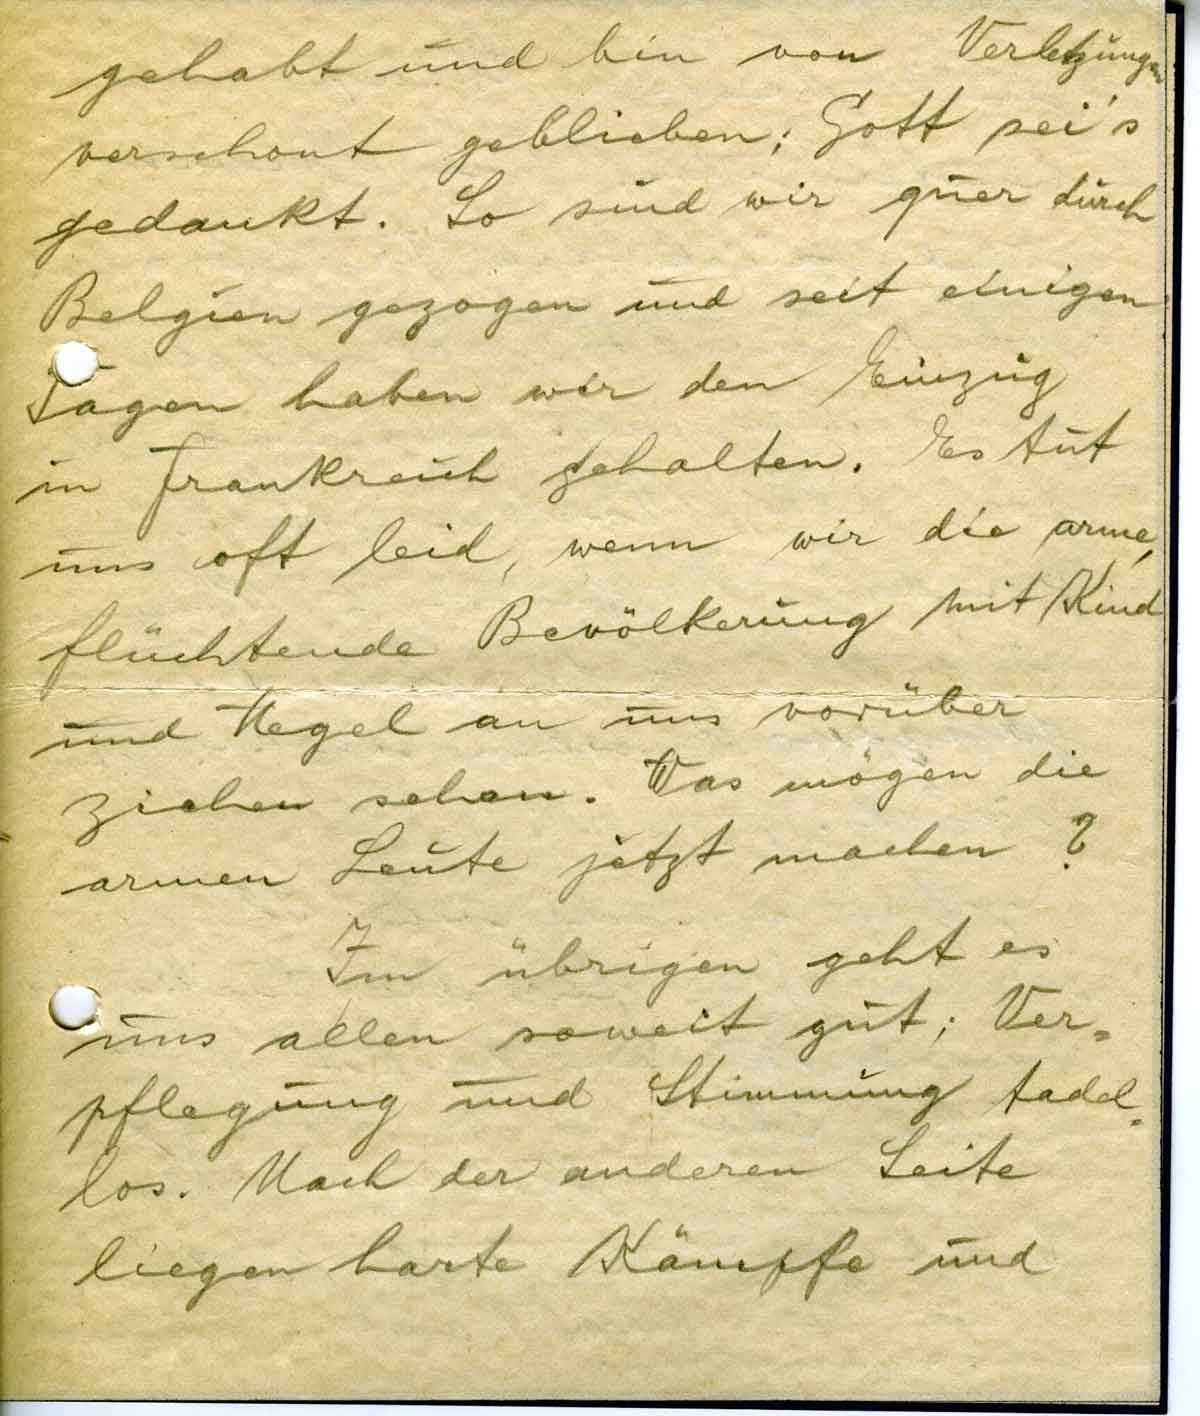 gehabt und bin von Verletzungen
verschont geblieben; Gott sei's
gedankt. So sind wir quer durch
Belgien gezogen und seit einigen
Tagen haben wir den Einzug
in Frankreich gehalten. Es tut
uns oft leid, wenn wir die arme,
flüchtende Bevölkerung mit Kind
und Kegel an uns vorüber
ziehen sehen. Was mögen die
armen Leute jetzt machen?
Im übrigen geht es
uns allen soweit gut; Ver=
pflegung und Stimmung tadel=
los. Nach der anderen Seite
liegen harte Kämpfe und